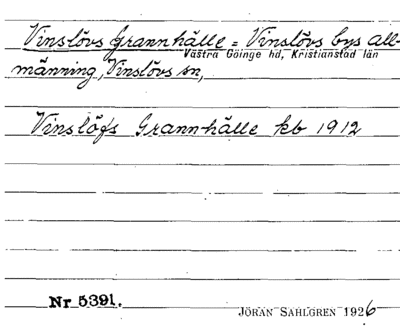 Vinslövs Grannhälle = Vinslövs bys all-
Västra Göinge hd, Kristianstad län
männing, Vinslövs sn,
Vinslöfs Grannhälle kb 1912
Nr 5391.
JÖRAN SAHLGREN 1926